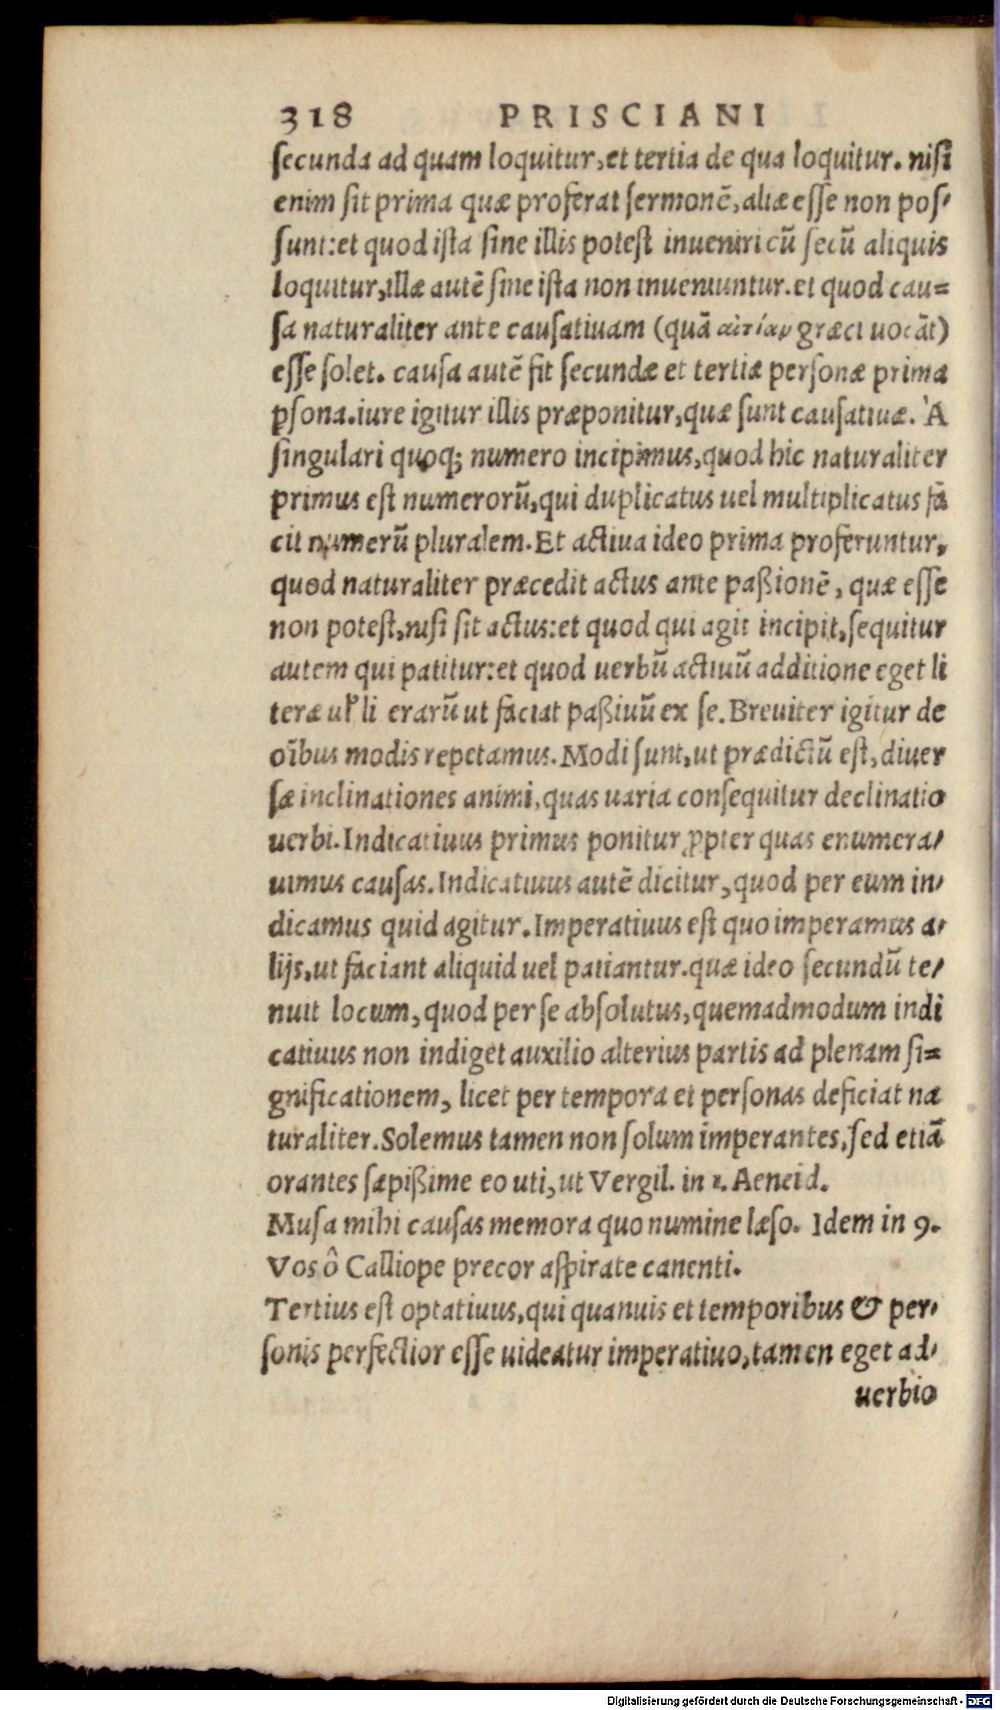 318 PRISCIANI
secunda ad quam loquitur, et tertia de qua loquitur. nisi
enim sit prima quæ proferat sermonē, aliæ esse non pos-
sunt: et quod ista sine illis potest inueniri cū secū aliquis
loquitur, illæ autē sine ista non inueniuntur. et quod cau=
sa naturaliter ante causatiuam (quā αἰτίαν græci uocāt)
esse solet. causa autē fit secundæ et tertiæ personæ prima
ꝑsona. iure igitur illis præponitur, quæ sunt causatiuæ. A
singulari quoq; numero incipimus, quod hic naturaliter
primus est numerorū, qui duplicatus uel multiplicatus fa
cit numerū pluralem. Et actiua ideo prima proferuntur,
quod naturaliter præcedit actus ante paßionē, quæ esse
non potest, nisi sit actus: et quod qui agit incipit, sequitur
autem qui patitur: et quod uerbū actiuū additione eget li
teræ uł li erarū ut faciat paßiuū ex se. Breuiter igitur de
oībus modis repetamus. Modi sunt, ut prædictū est, diuer
sæ inclinationes animi, quas uaria consequitur declinatio
uerbi. Indicatiuus primus ponitur ꝓpter quas enumera-
uimus causas. Indicatiuus autē dicitur, quod per eum in-
dicamus quid agitur. Imperatiuus est quo imperamus a-
lijs, ut faciant aliquid uel patiantur. quæ ideo secundū te-
nuit locum, quod per se absolutus, quemadmodum indi
catiuus non indiget auxilio alterius partis ad plenam si=
gnificationem, licet per tempora et personas deficiat na
turaliter. Solemus tamen non solum imperantes, sed etiā
orantes sæpißime eo uti, ut Vergil. in 1. Aeneid.
Musa mihi causas memora quo numine læso. Idem in 9.
Vos ô Calliope precor aspirate canenti.
Tertius est optatiuus, qui quanuis et temporibus & per-
sonis perfectior esse uideatur imperatiuo, tamen eget ad-
uerbio
Digitalisierung gefördert durch die Deutsche Forschungsgemeinschaft - DFG